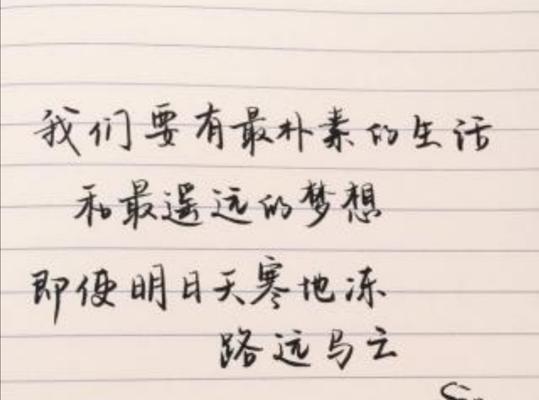 我们要有最朴素的生活
和最遥远的梦想
即使明日天寒地冻
路远马云